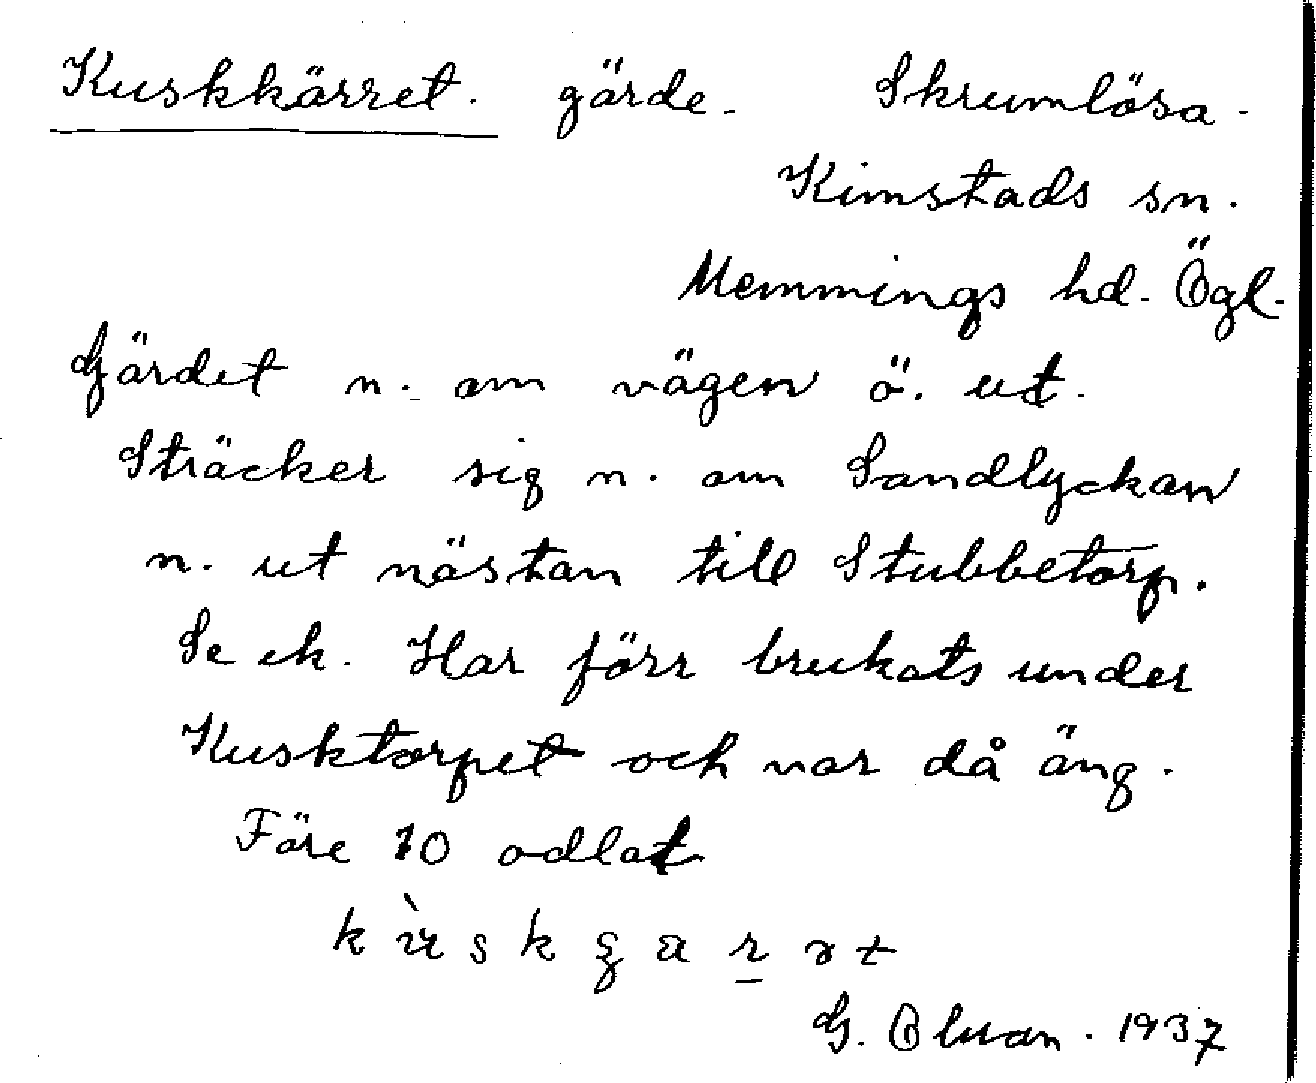 Kuskkärret. gärde. Skrumlösa.
Kimstads sn.
Memmings hd. Ögl.
Gärdet n. om vägen ö. ut.
Sträcker sig n. om Sandlyckan
n. ut nästan till Stubbetorp.
Se ek. Har förr brukats under
Kusktorpet och var då äng.
Före 70 odlat
G. 1937